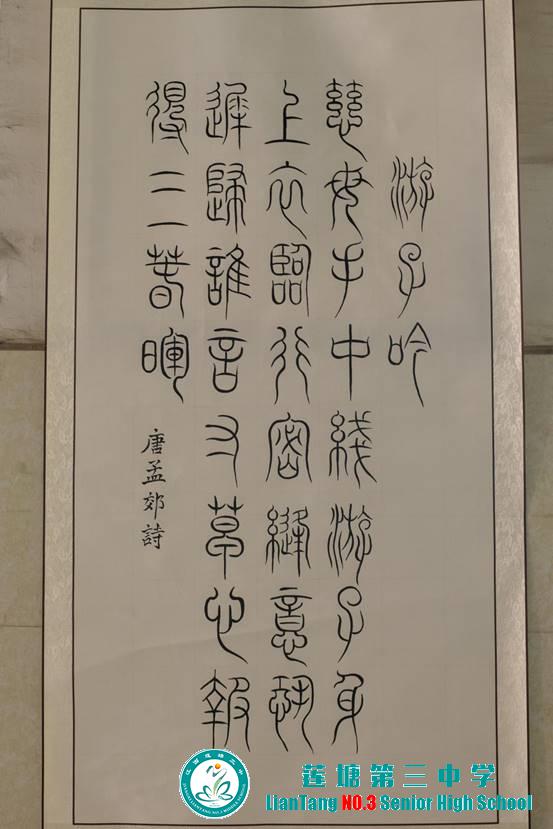 游子吟
慈母手中綫游子身
上衣臨行密縫意恐
遲歸誰言寸草心報
得三春暉
唐孟郊詩
莲塘第三中学
LianTang NO.3 Senior High School